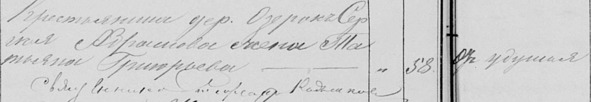 Крестьянина дер. Озерокъ Сер
гея Абрамова жена Та
тьяна Григорьева — " 58. Отъ удушья
Священникъ Радымнов